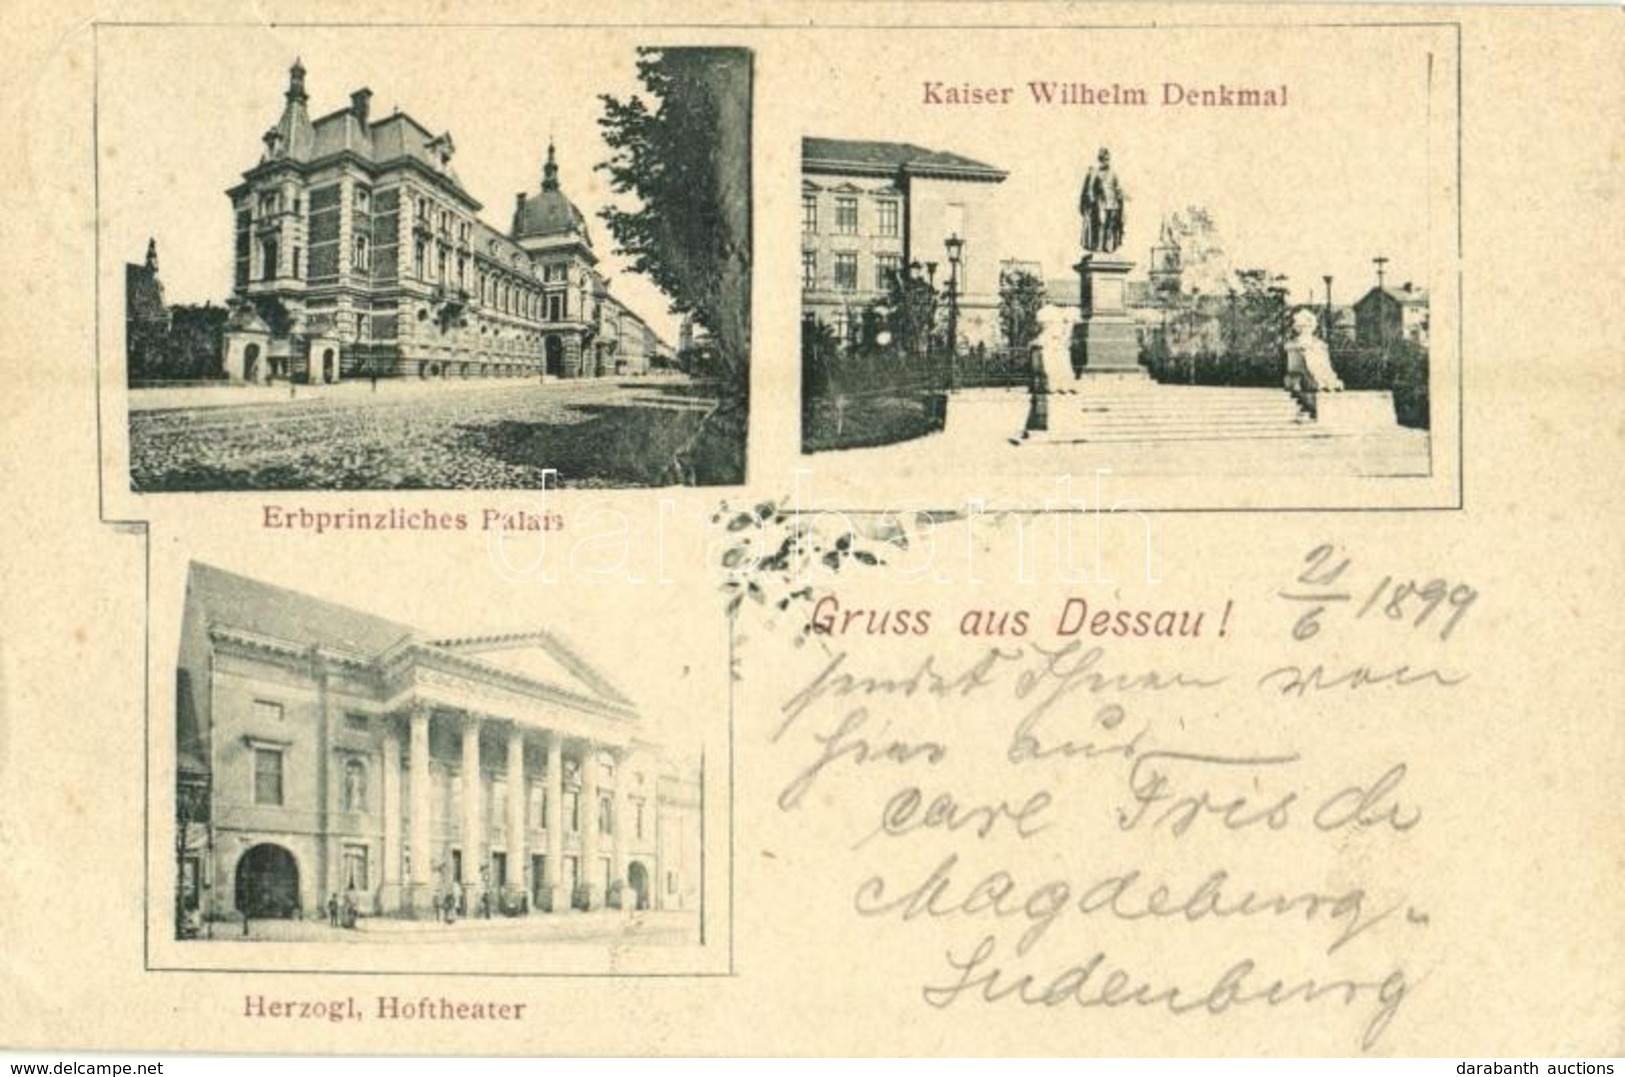 Kaiser Wilhelm Denkmal
Erbprinzliches Palais
darabanth
Gruss aus Dessau!
21/6 1899
sendet Ihnen von
hier aus
Carl
Magdeburg-
Sudenburg
Herzogl, Hoftheater
www.delcampe.net
darabanth auctions